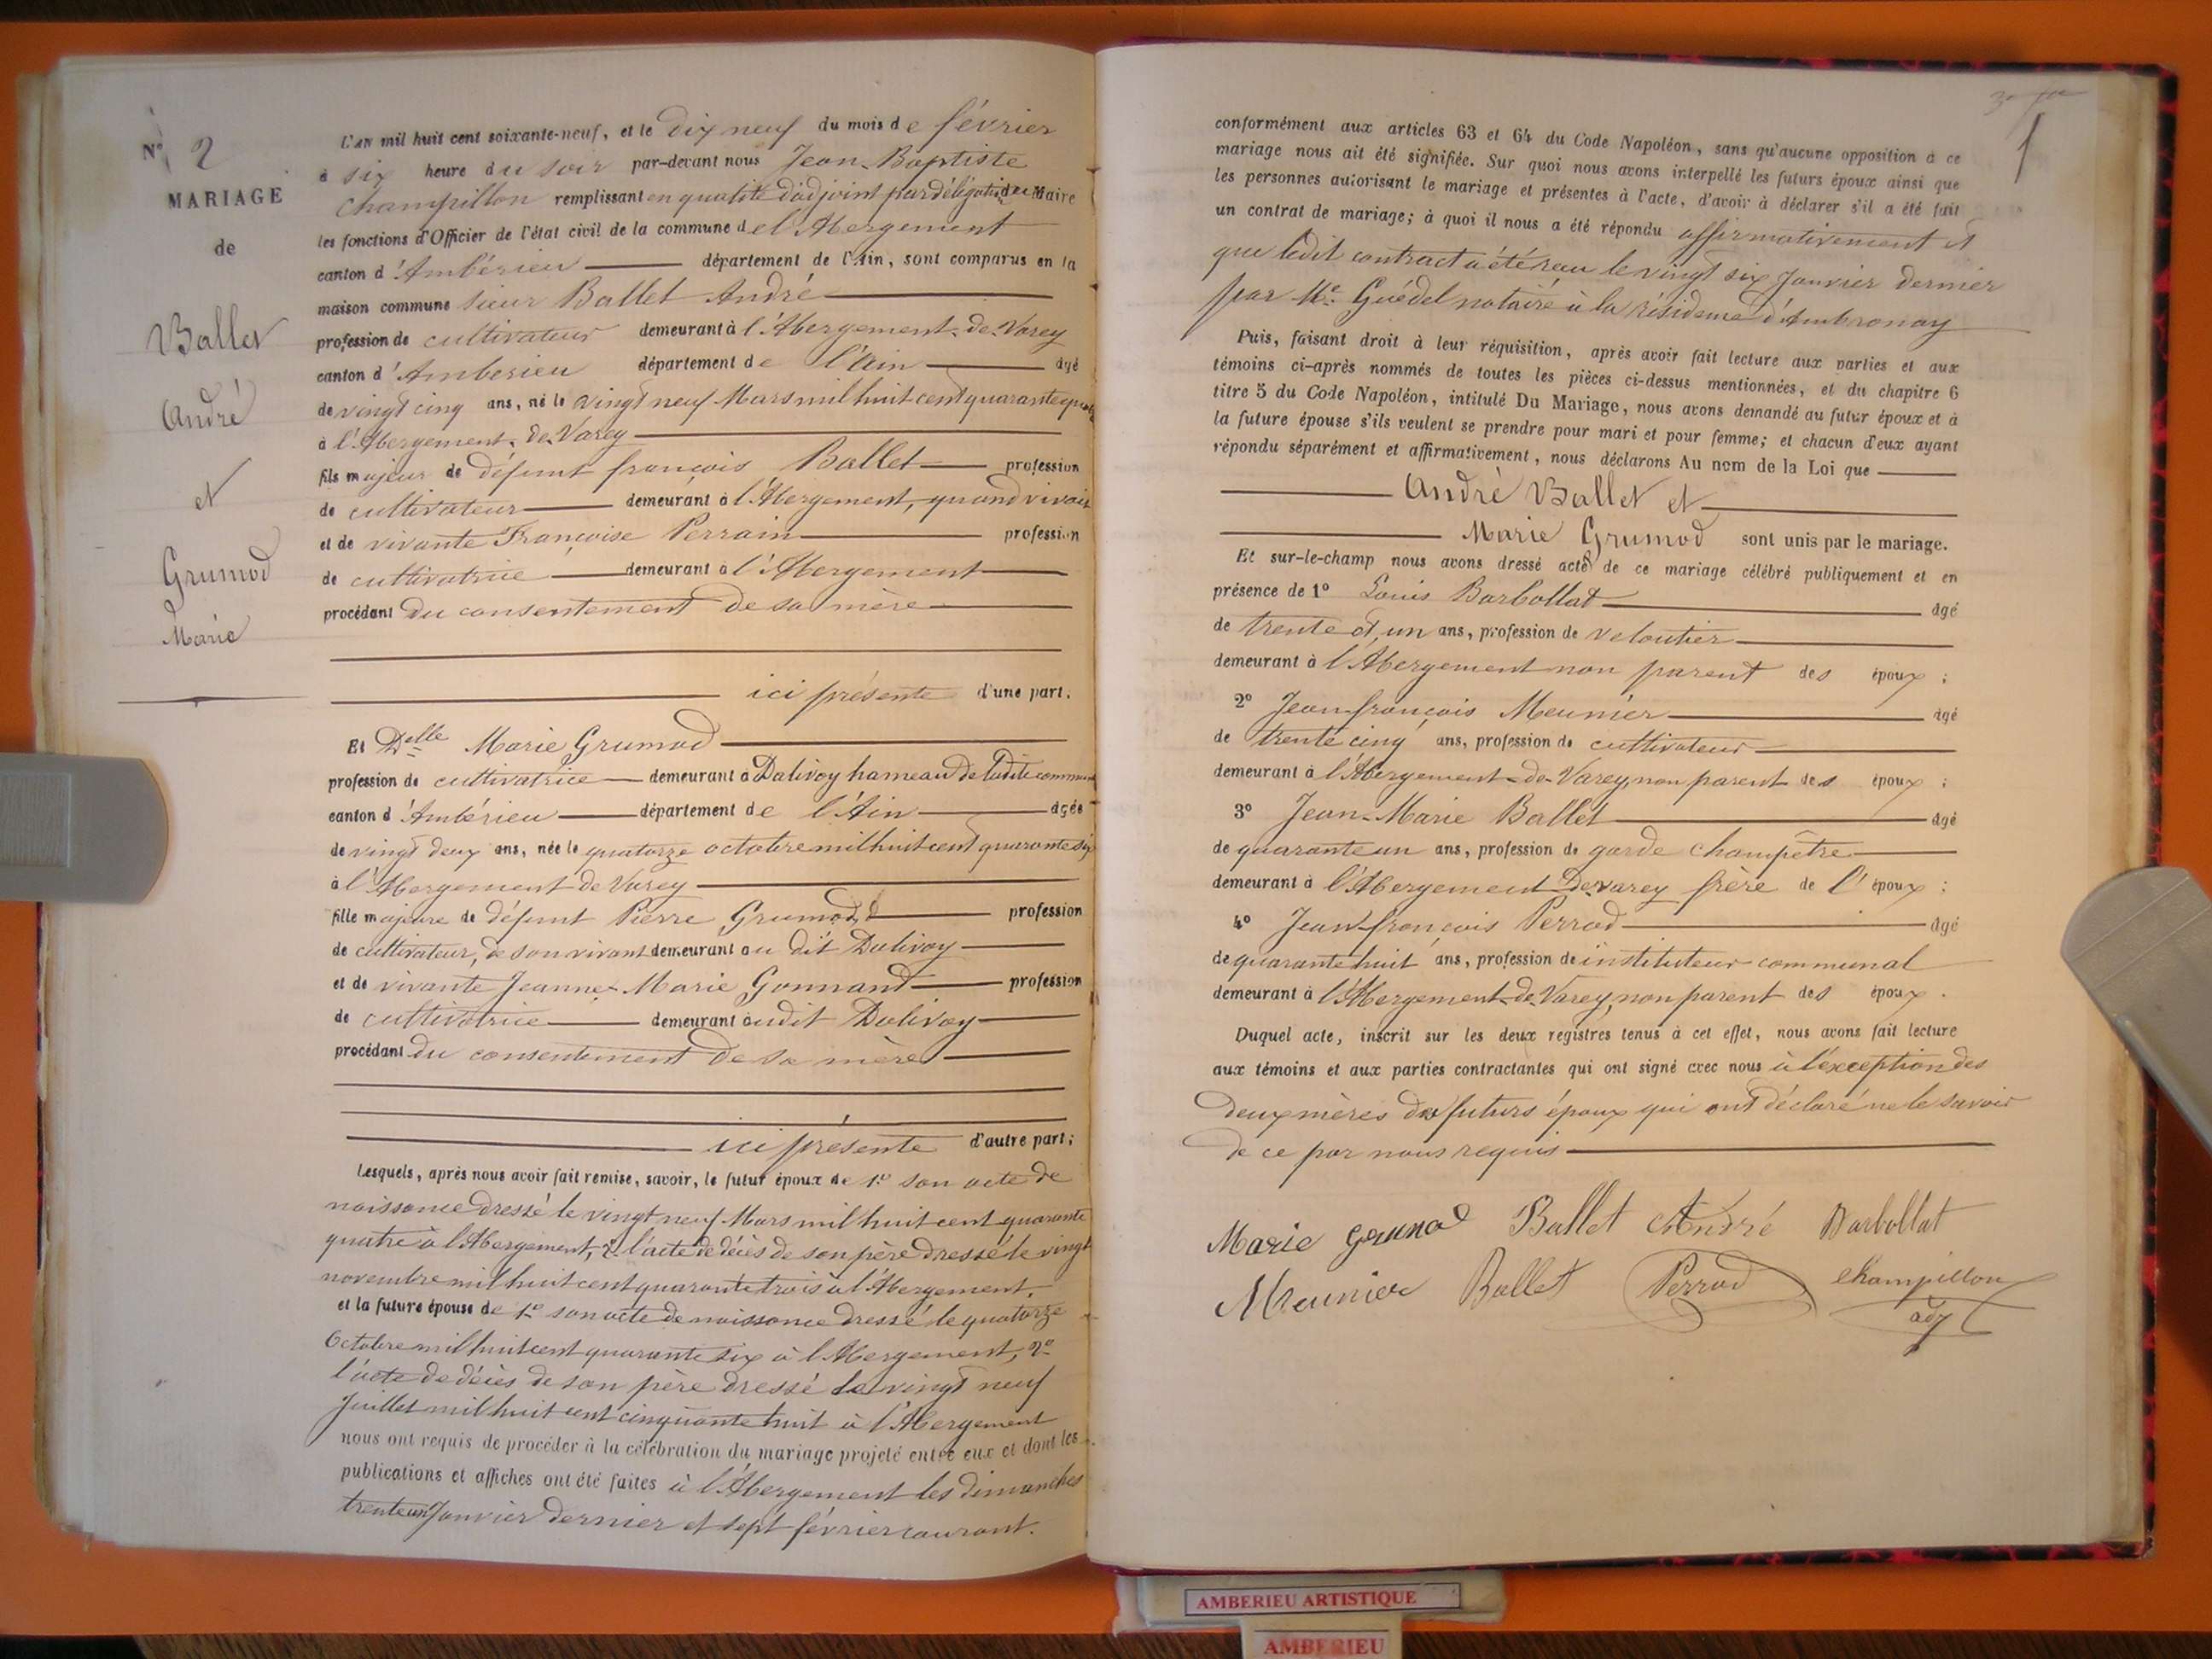 N° 2
MARIAGE
de
Ballet
André
et
Grumod
Marie
L'AN mil huit cent soixante-neuf, et le dix neuf du mois de février
à six heure du soir par-devant nous Jean-Baptiste
Champillon remplissant en qualité d'adjoint par délégation du Maire
les fonctions d'Officier de l'état civil de la commune de l'Abergement
canton d'Ambérieu département de l'Ain, sont comparus en la
maison commune sieur Ballet André
profession de cultivateur demeurant à l'Abergement-de-Varey
canton d'Ambérieu département de l'Ain âgé
de vingt cinq ans, né le vingt neuf Mars mil huit cent quarante quatre
à l'Abergement-de-Varey
fils majeur de défunt françois Ballet profession
de cultivateur demeurant à l'Abergement, quand vivait
et de vivante Françoise Perrain profession
de cultivatrice demeurant à l'Abergement
procédant du consentement de sa mère
ici présente d'une part.
Et Delle Marie Grumod
profession de cultivatrice demeurant à Dalivoy hameau de ladite commune
canton d'Ambérieu département de l'Ain âgée
de vingt deux ans, née le quatorze octobre mil huit cent quarante six
à l'Abergement de Varey
fille majeure de défunt Pierre Grumod profession
de cultivateur, de son vivant demeurant au dit Dalivoy
et de vivante Jeanne-Marie Gonnand profession
de cultivatrice demeurant audit Dalivoy
procédant du consentement de sa mère
ici présente d'autre part;
Lesquels, après nous avoir fait remise, savoir, le futur époux de 1° son acte de
naissance dressé le vingt neuf Mars mil huit cent quarante
quatre à l'Abergement, 2° l'acte de décès de son père dressé le vingt
novembre mil huit cent quarante trois à l'Abergement.
et la future épouse de 1° son acte de naissance dressé le quatorze
Octobre mil huit cent quarante six à l'Abergement, 2°
l'acte de décès de son père dressé le vingt neuf
Juillet mil huit cent cinquante huit à l'Abergement
nous ont requis de procéder à la célébration du mariage projeté entre eux et dont les
publications et affiches ont été faites à l'Abergement les dimanches
trente un Janvier dernier et sept février courant.
conformément aux articles 63 et 64 du Code Napoléon, sans qu'aucune opposition à ce
mariage nous ait été signifiée. Sur quoi nous avons interpellé les futurs époux ainsi que
les personnes autorisant le mariage et présentes à l'acte, d'avoir à déclarer s'il a été fait
un contrat de mariage; à quoi il nous a été répondu affirmativement et
que ledit contract a été reçu le vingt six Janvier dernier
par Me Guédel notaire à la résidence d'Ambronay
Puis, faisant droit à leur réquisition, après avoir fait lecture aux parties et aux
témoins ci-après nommés de toutes les pièces ci-dessus mentionnées, et du chapitre 6
titre 5 du Code Napoléon, intitulé Du Mariage, nous avons demandé au futur époux et à
la future épouse s'ils veulent se prendre pour mari et pour femme; et chacun d'eux ayant
répondu séparément et affirmativement, nous déclarons Au nom de la Loi que
André Ballet et
Marie Grumod sont unis par le mariage.
Et sur-le-champ nous avons dressé acte de ce mariage célébré publiquement et en
présence de 1° Louis Barbollat âgé
de trente et un ans, profession de veloutier
demeurant à l'Abergement non parent des époux;
2° Jean-françois Meunier âgé
de trente cinq ans, profession de cultivateur
demeurant à l'Abergement-de-Varey, non parent des époux;
3° Jean-Marie Ballet âgé
de quarante un ans, profession de garde champêtre
demeurant à l'Abergement De varey frère de l'époux;
4° Jean-françois Perrod âgé
de quarante huit ans, profession de instituteur communal
demeurant à l'Abergement-de-Varey, non parent des époux.
Duquel acte, inscrit sur les deux registres tenus à cet effet, nous avons fait lecture
aux témoins et aux parties contractantes qui ont signé avec nous à l'exception des
deux mères des futurs époux qui ont déclaré ne le savoir
de ce par nous requis
Marie Grumod Ballet André Barbollat
Meunier Ballet Perrod Champillon
adj
AMBERIEU ARTISTIQUE
AMBERIEU